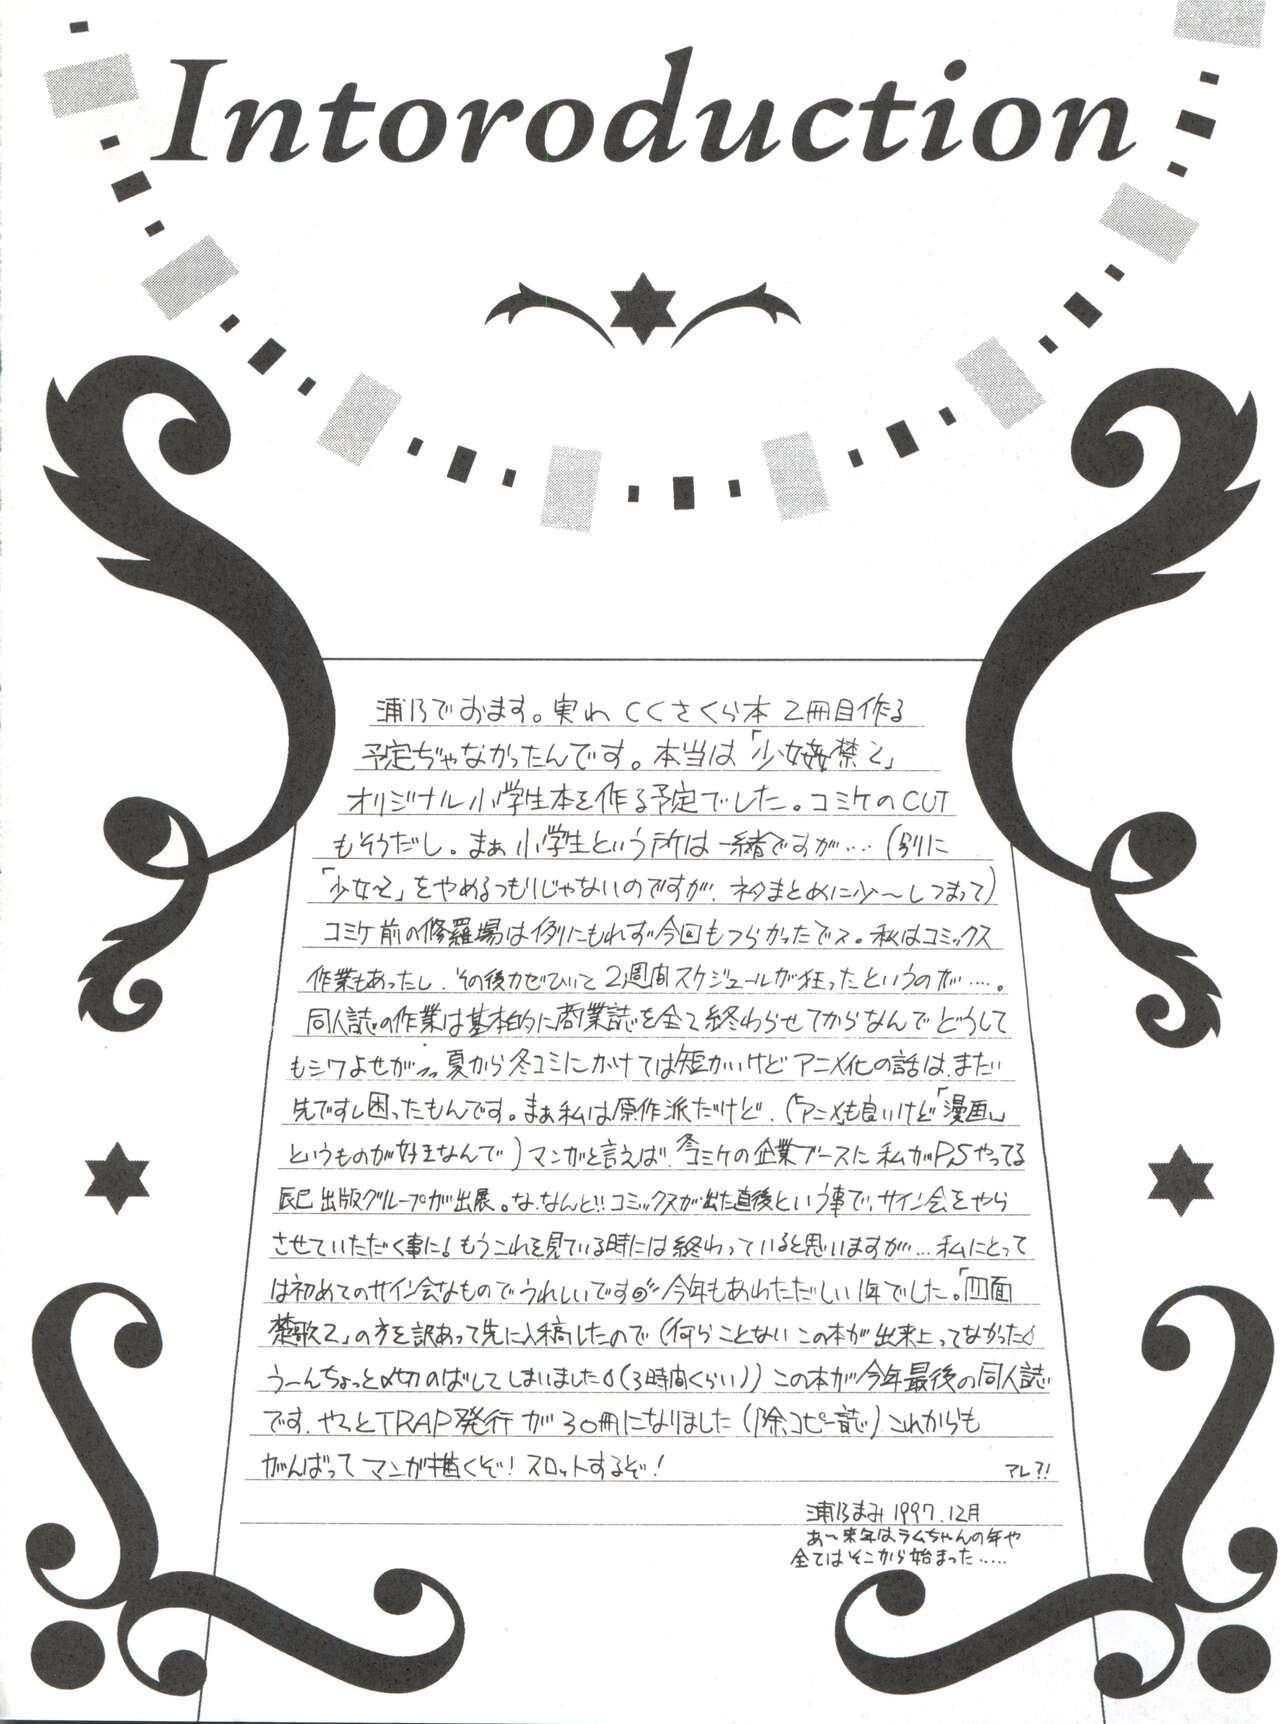 Intoroduction
浦乃でおます。実わ CCさくら本 2冊目作る
予定ぢゃなかったんです。本当は「少女姦禁2」
オリジナル小学生本を作る予定でした。コミケのCUT
もそうだし。まぁ小学生という所は一緒ですが‥‥(別に
「少女〜2」をやめるつもりじゃないのですが、ネタまとめに少〜しつまって)
コミケ前の修羅場は例にもれず今回もつらかったでス。私はコミックス
作業もあったし、その後カゼひいて2週間スケジュールが狂ったというのが‥‥。
同人誌の作業は基本的に商業誌を全て終わらせてからなんでどうして
もシワよせが 夏から冬コミにかけては短かいけどアニメ化の話は、まだ
先ですし困ったもんです。まぁ私は原作派だけど、(「アニメ」も良いけど「漫画」
というものが好きなんで)マンガと言えば、冬コミケの企業ブースに私がP.Sやってる
辰巳出版グループが出展。な、なんと!!コミックスが出た直後という事で、サイン会をやら
させていただく事に!もうこれを見ている時には終わっていると思いますが…私にとって
は初めてのサイン会なものでうれしいです 今年もあわただしい1年でした。「四面
楚歌2」の方を訳あって先に入稿したので(何らことないこの本が出来上ってなかった
う〜んちょっと〆切のばしてしまいました(3時間くらい))この本が今年最後の同人誌
です。やっとTRAP発行が30冊になりました(除コピー誌)これからも
がんばってマンガ描くぞ!スロットするぞ! アレ?!
浦乃まみ 1997.12月
あ〜来年はラムちゃんの年や
全てはそこから始まった‥‥‥